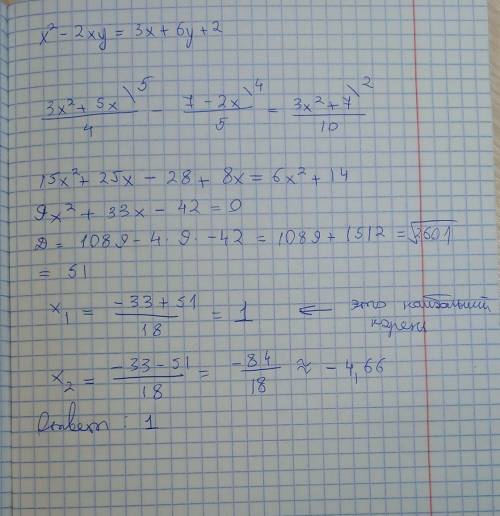 x² - 2xy = 3x + 6y + 2
(3x² + 5x)/4 \5 - (7 - 2x)/5 \4 = (3x² + 7)/10 \2
15x² + 25x - 28 + 8x = 6x² + 14
9x² + 33x - 42 = 0
D = 1089 - 4 · 9 · -42 = 1089 + 1512 = √2601
= 51
x₁ = (-33 + 51)/18 = 1 ← это наибольший
корень
x₂ = (-33 - 51)/18 = -84/18 ≈ -4,66
Ответ : 1